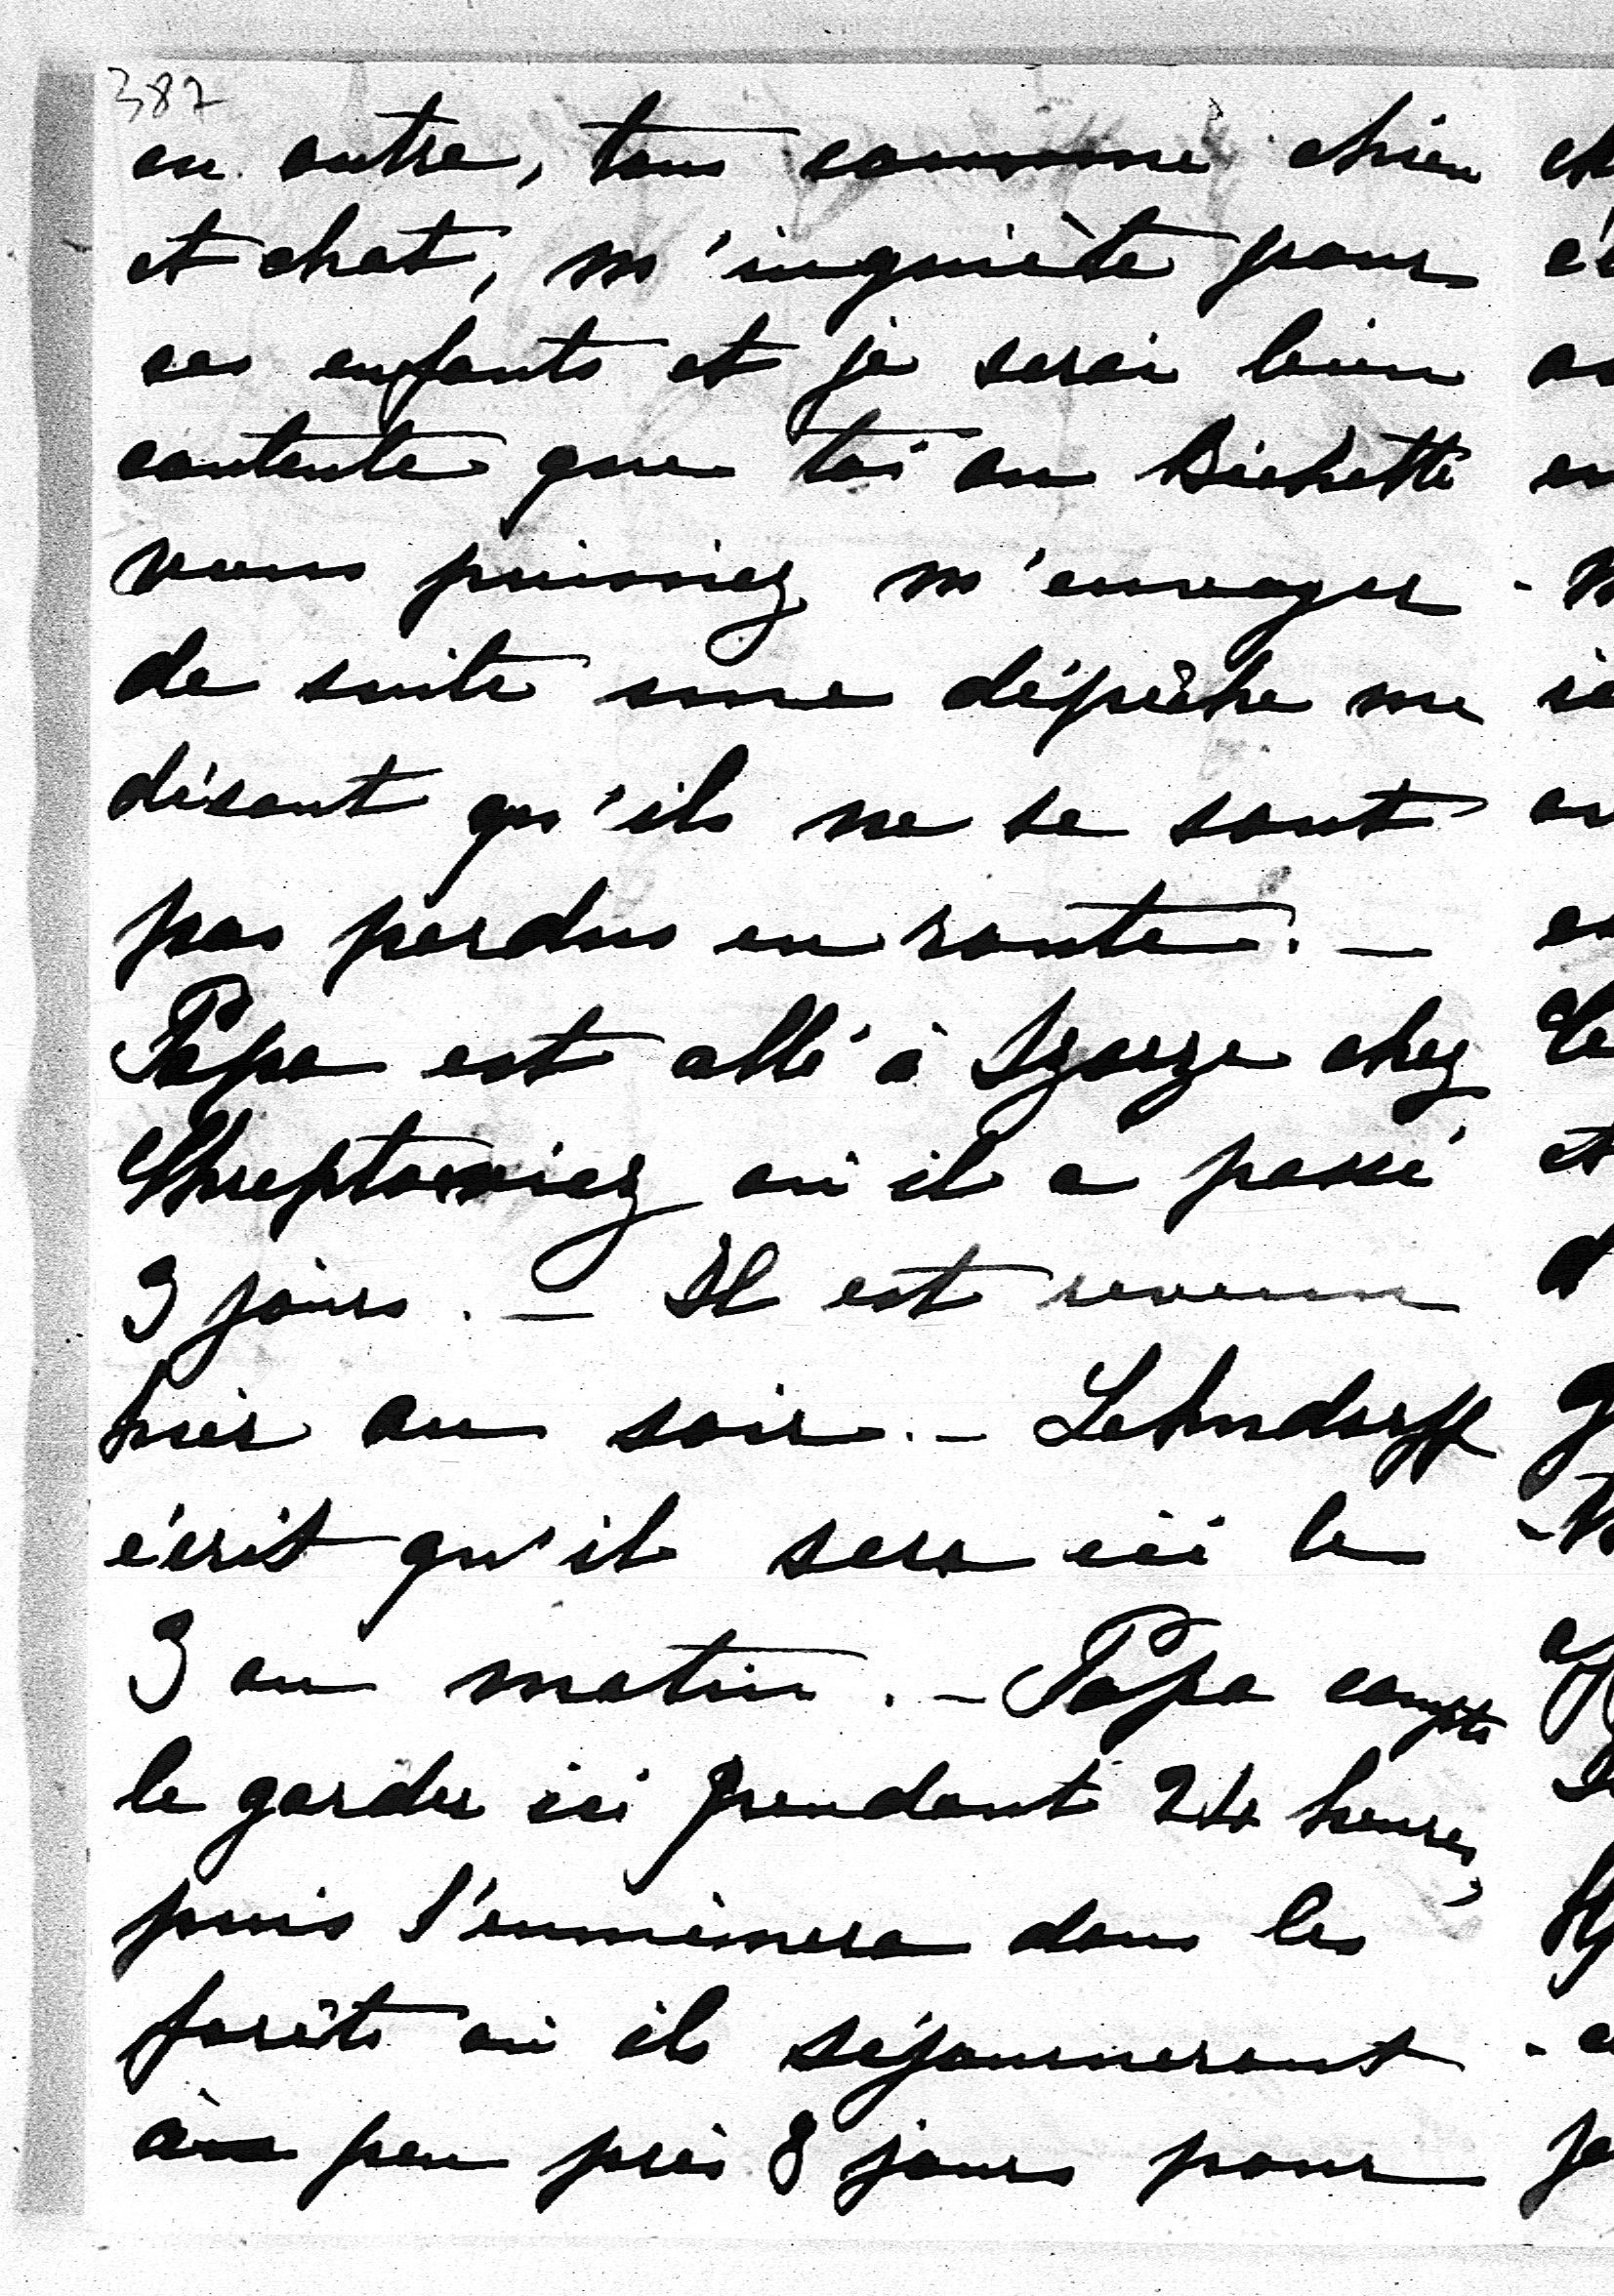 387
en outre, tous comme chien
et chat, m'inquiète pour
ses enfants et je serai bien
contente que toi ou Bichette
vous puissiez m'envoyer
de suite une dépêche me
disant qu'ils ne se sont
pas perdus en route. —
Papa est allé à chez
où il a passé
3 jours. — Il est revenu
hier au soir. — Lehndorff
écrit qu'il sera ici le
3 au matin. — Papa compte
le garder ici pendant 24 heures,
puis l'emmènera dans les
forêts où ils séjourneront
à peu près 8 jours pour